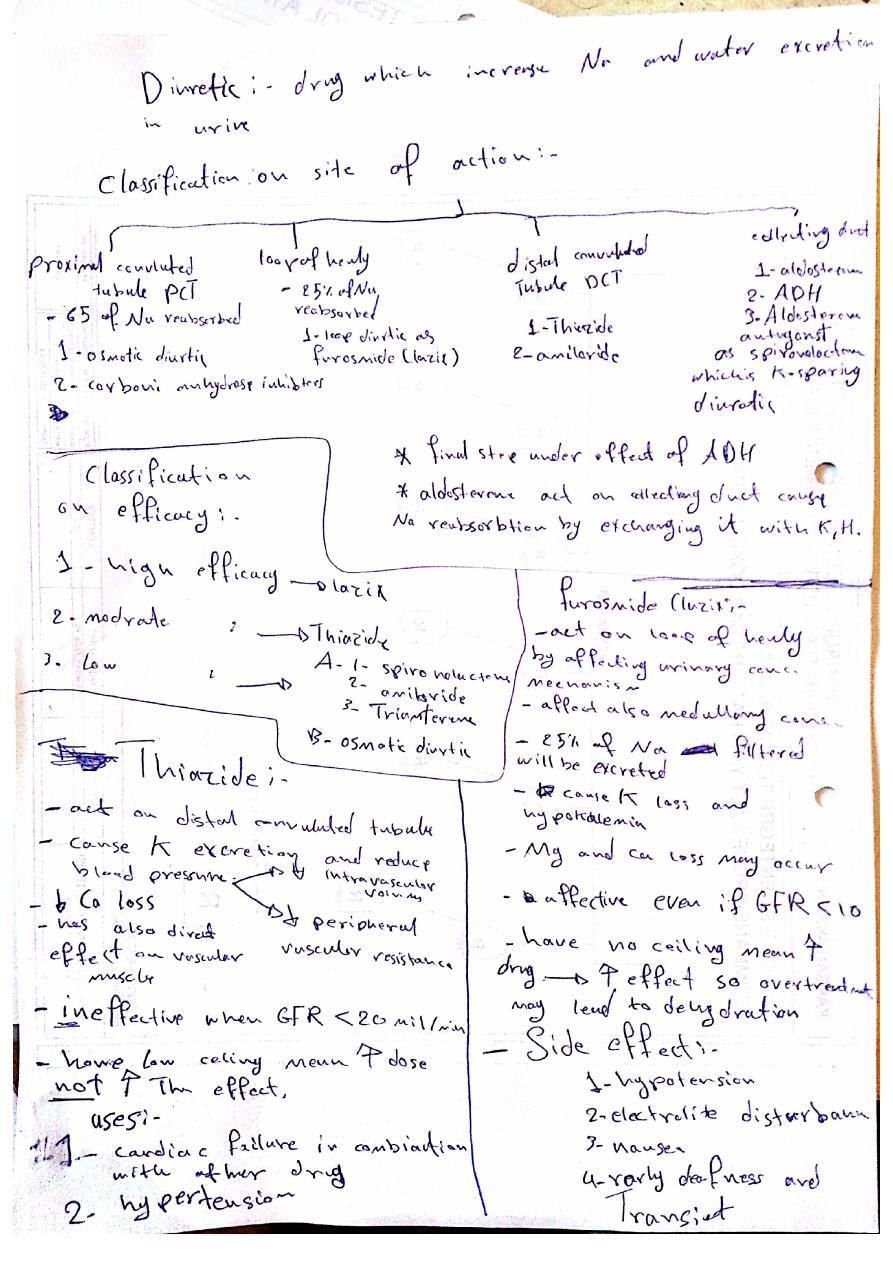 Diuretic :- drug which increase Na and water excretion
in urine
Classification on site of action :-
proximal convluted
tubule PCT
- 65 of Na reabsorbed
1- osmotic diurtic
2- carbonic anhydrase inhibiters
loop of henly
- 25% of Na
reabsorbed
1- loop diurtic as
furosmide (lazix)
distal convuluted
Tubule DCT
1- Thiazide
2- amiloride
collecting duct
1- aldosteron
2- ADH
3- Aldosteron
antagonst
as spironolactom
which is K-sparing
diuratic
* final step under effect of ADH
* aldosterone act on collecting duct cause
Na reabsorbtion by exchanging it with K, H.
Classification
on efficacy :.
1 - high efficacy → lazix
2. modrate " → Thiazide
3. Low " → A- 1- spironolactone
2- amiloride
3- Triamterene
B- osmotic diurtic
Thiazide :-
- act on distal convuluted tubule
- cause K excretion and reduce
blood pressure → ↓ intravascular
volume
→ ↓ peripheral
vascular resistance
- ↓ Ca loss
- has also direct
effect on vascular
muscle
- ineffective when GFR < 20 mil/min
- have low celing mean ↑ dose
not ↑ The effect,
uses :-
1 - cardiac failure in combiaction
with other drug
2- hypertension
furosmide (lazix) :-
- act on loop of henly
by affecting urinary conc.
mechanism
- affect also medullary conc.
- 25% of Na filtered
will be excreted
- cause K loss and
hypokalemia
- Mg and Ca loss may occur
- affective even if GFR < 10
- have no ceiling mean ↑
drug → ↑ effect so overtreatment
may lead to dehydration
- Side effect :-
1- hypotension
2- electrolite disturbance
3- nausea
4- rarly deafness and
Transiet